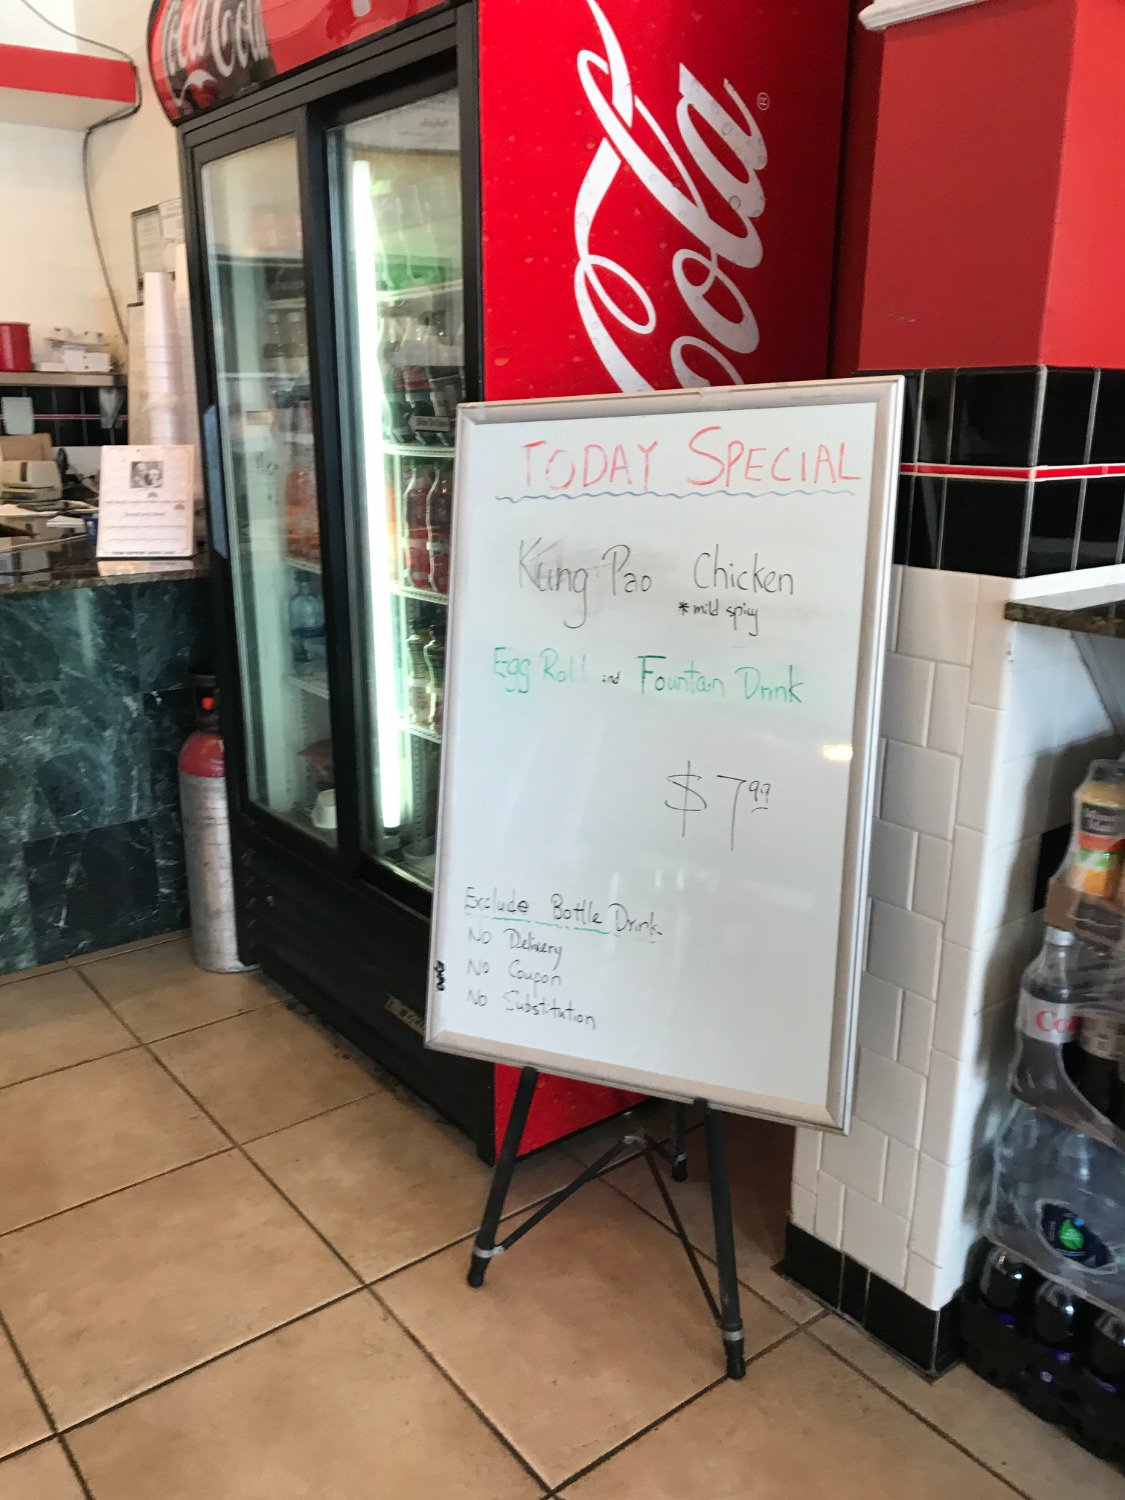 Coca-Cola
Cola
®
TODAY SPECIAL
Kung Pao Chicken
*mild spicy
Egg Roll and Fountain Drink
$7.99
Exclude Bottle Drink
No Delivery
No Coupon
No Substitution